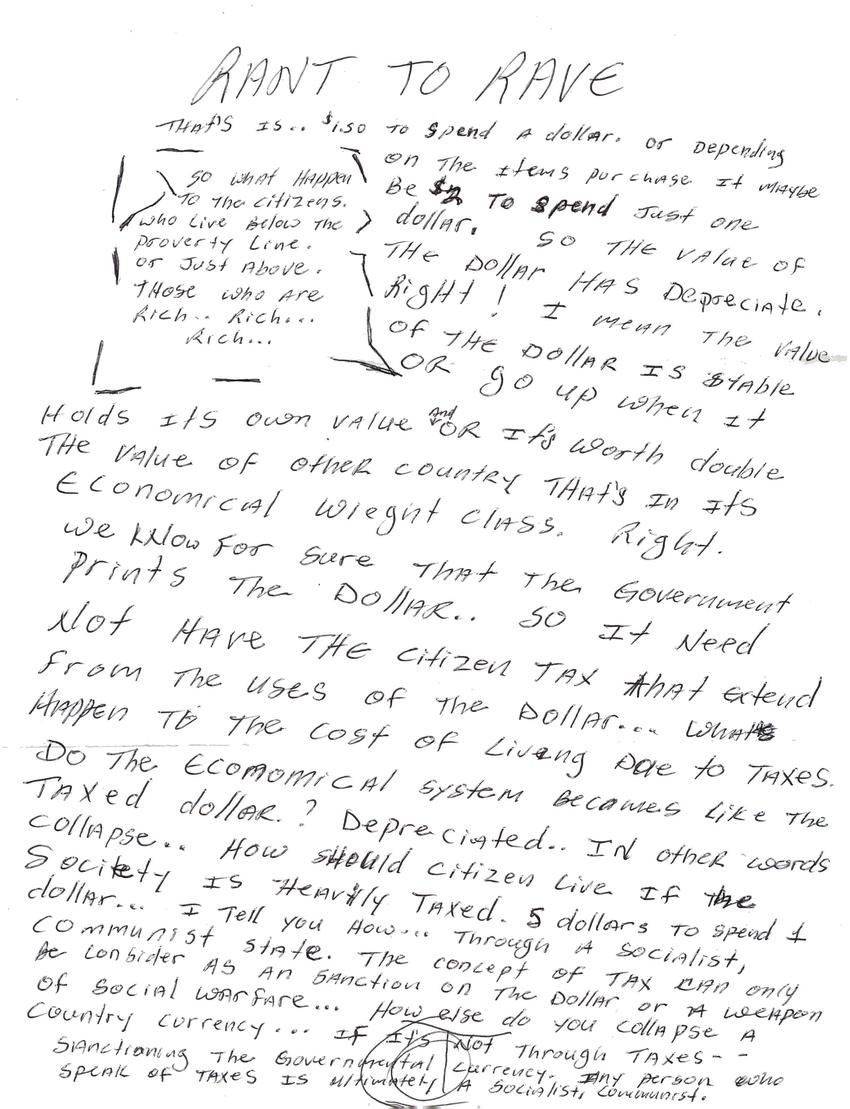 RANT TO RAVE
THAT'S IS.. $1.50 TO spend A dollar. OR Depending
on The Items purchase It maybe
Be $2 To spend Just one
dollar. SO THE VALUE OF
THE DOLLAR HAS Depreciate.
Right! I mean The Value
OF THE DOLLAR IS Stable
OR go up when It
SO what Happen
To The citizens.
who Live Below The
proverty Line.
OR Just Above.
THOSE who ARE
Rich.. Rich...
Rich...
Holds its own value And OR It's worth double
THE VALUE OF OTHER COUNTRY THAT'S In Its
ECONOMICAL Wieght CLASS. Right.
We KNOW FOR Sure THAT THE Government
Prints The DOLLAR.. SO It Need
Not HAVE THE citizen TAX that extend
From The USES OF The DOLLAR...
HAPPEN TO The COST OF Living Due to TAXES.
DO THE Ecomomical system Becames Like The
TAXED dollar.? Depreciated.. IN other words
COLLAPSE.. How should citizen Live If The
Society IS Heavily Taxed. 5 dollars To Spend 1
dollar... I Tell you How... Through A Socialist,
Communist State. The concept OF TAX can only
Be Consider AS An Sanction on The Dollar or A weapon
OF SOCIAL WARFARE... How else do you collapse A
Country Currency... IF It's Not Through TAXES--
SANctioning The Governmental currency. Any person who
speak OF TAXES IS ultimately A Socialist, communist.